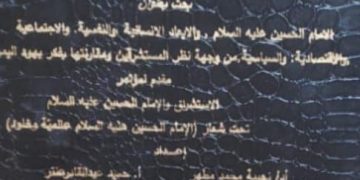 بحث بعنوان
الامام الحسين عليه السلام , والابعاد الانسانية والنفسية, والاجتماعية
والاقتصادية, والسياسية من وجهة نظر المستشرقين ومقارنتها بفكر
مقدم لمؤتمر
الاستشراق والامام الحسين عليه السلام
تحت شعار (الامام الحسين عليه السلام عالمية وخلود)
إعداد
محمد